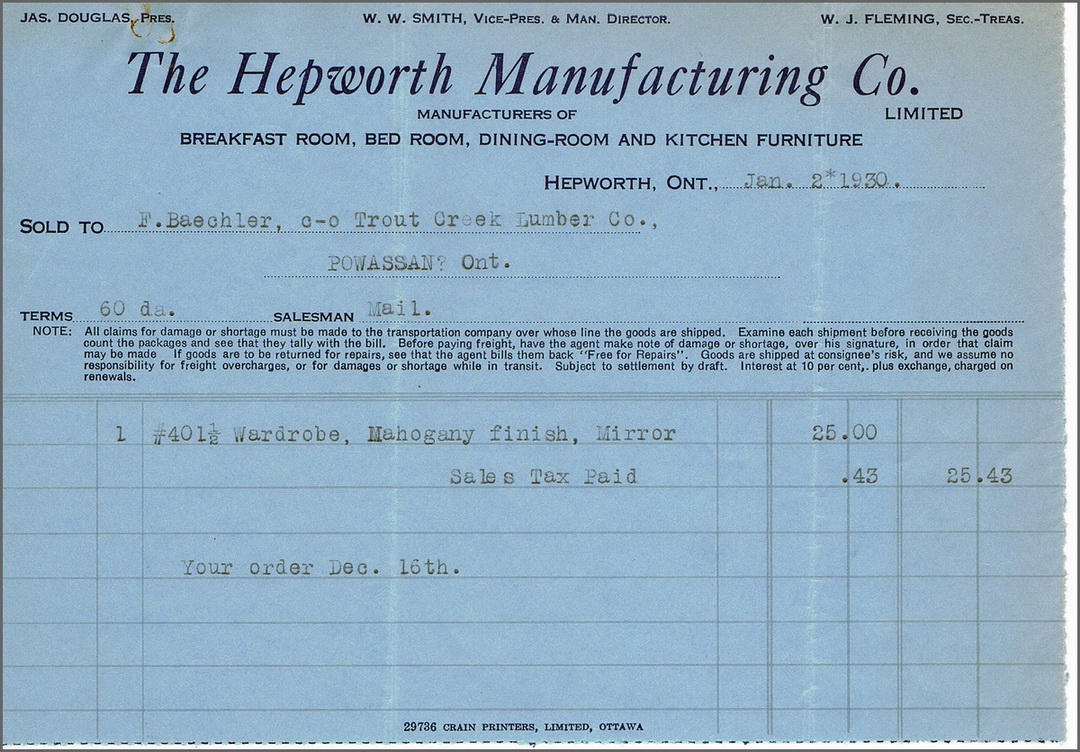 JAS. DOUGLAS, PRES. W. W. SMITH, VICE-PRES. & MAN. DIRECTOR. W. J. FLEMING, SEC.-TREAS.
The Hepworth Manufacturing Co.
MANUFACTURERS OF LIMITED
BREAKFAST ROOM, BED ROOM, DINING-ROOM AND KITCHEN FURNITURE
HEPWORTH, ONT., Jan. 2*1930.
SOLD TO F.Baechler, c-o Trout Creek Lumber Co.,
POWASSAN? Ont.
TERMS 60 da. SALESMAN Mail.
NOTE: All claims for damage or shortage must be made to the transportation company over whose line the goods are shipped. Examine each shipment before receiving the goods
count the packages and see that they tally with the bill. Before paying freight, have the agent make note of damage or shortage, over his signature, in order that claim
may be made If goods are to be returned for repairs, see that the agent bills them back "Free for Repairs". Goods are shipped at consignee's risk, and we assume no
responsibility for freight overcharges, or for damages or shortage while in transit. Subject to settlement by draft. Interest at 10 per cent,. plus exchange, charged on
renewals.
1 #401½ Wardrobe, Mahogany finish, Mirror 25.00
Sales Tax Paid .43 25.43
Your order Dec. 16th.
29736 CRAIN PRINTERS, LIMITED, OTTAWA